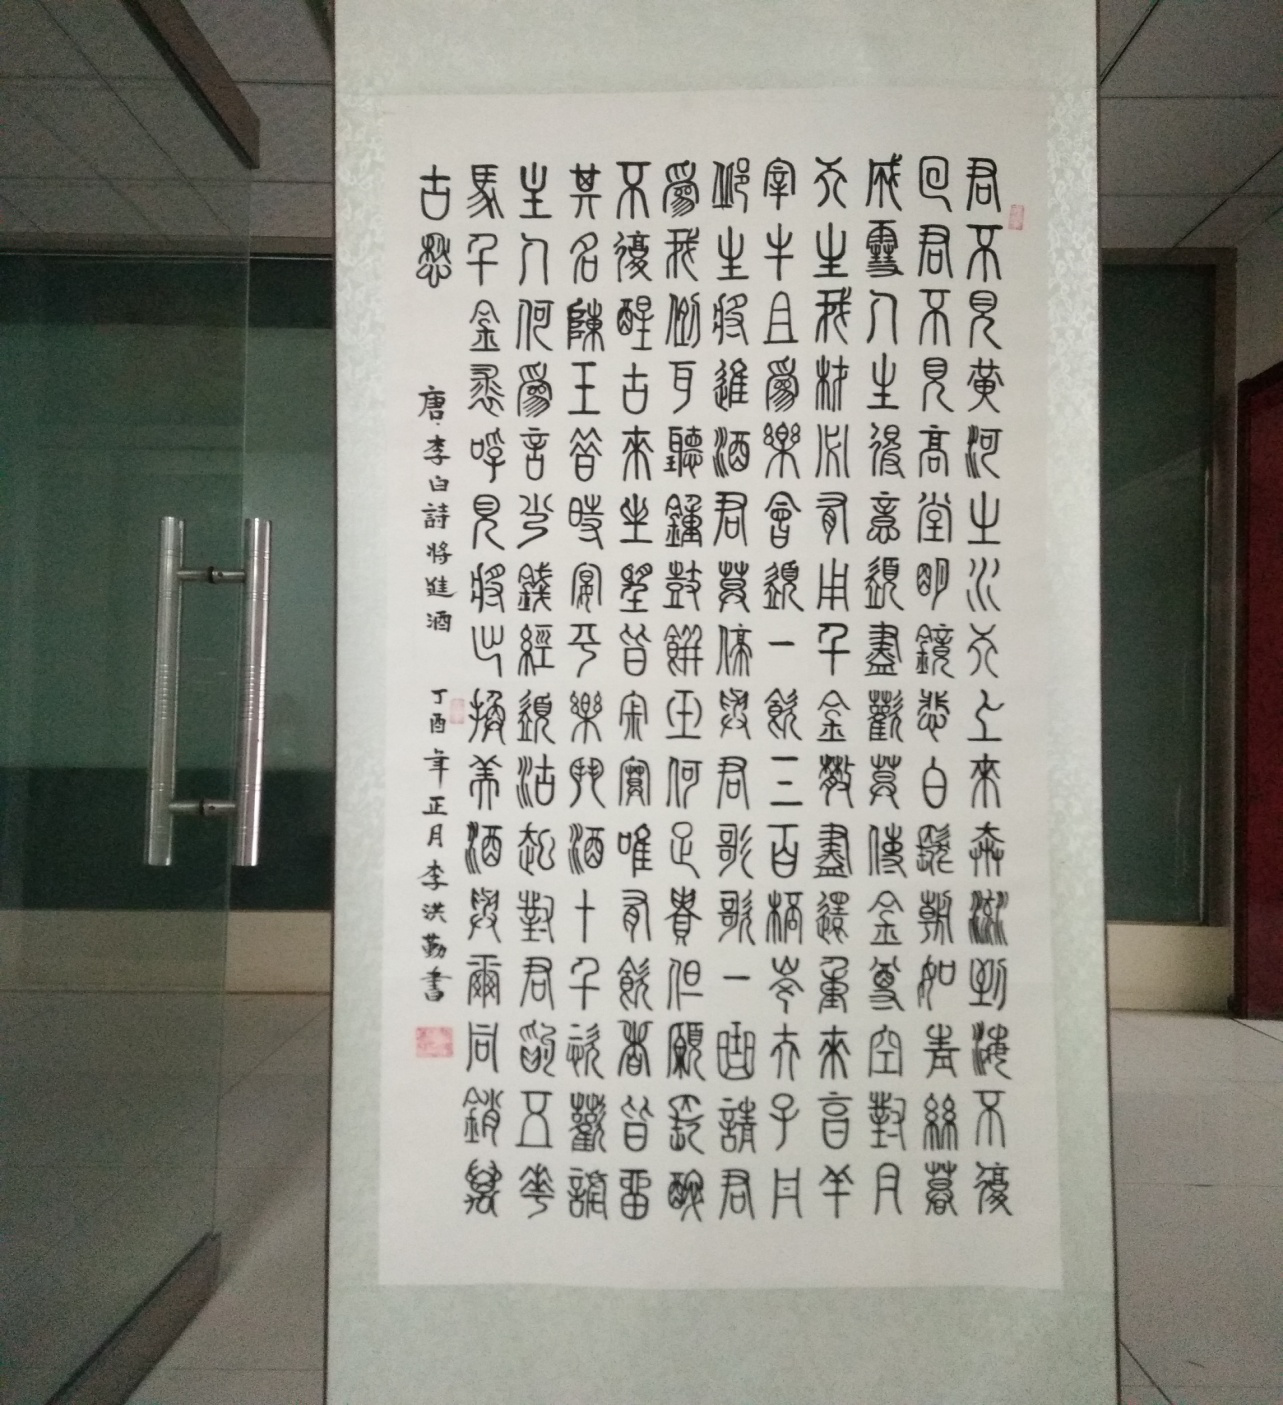 君不見黃河之水天上來奔流到海不復
回君不見高堂明鏡悲白髮朝如青絲暮
成雪人生得意須盡歡莫使金尊空對月
天生我材必有用千金散盡還重來烹羊
宰牛且為樂會須一飲三百杯岑夫子丹
邱生將進酒君莫停與君歌歌一曲請君
為我側耳聽鐘鼓饌玉何足貴但願長醉
不復醒古來聖賢皆寂寞唯有飲者皆留
其名陳王昔時宴平樂鬥酒十千恣歡謔
主人何為言少錢經須沽取對君酌五花
馬千金裘呼兒將出換美酒與爾同銷萬
古愁
唐·李白詩將進酒
丁酉年正月李洪勤書